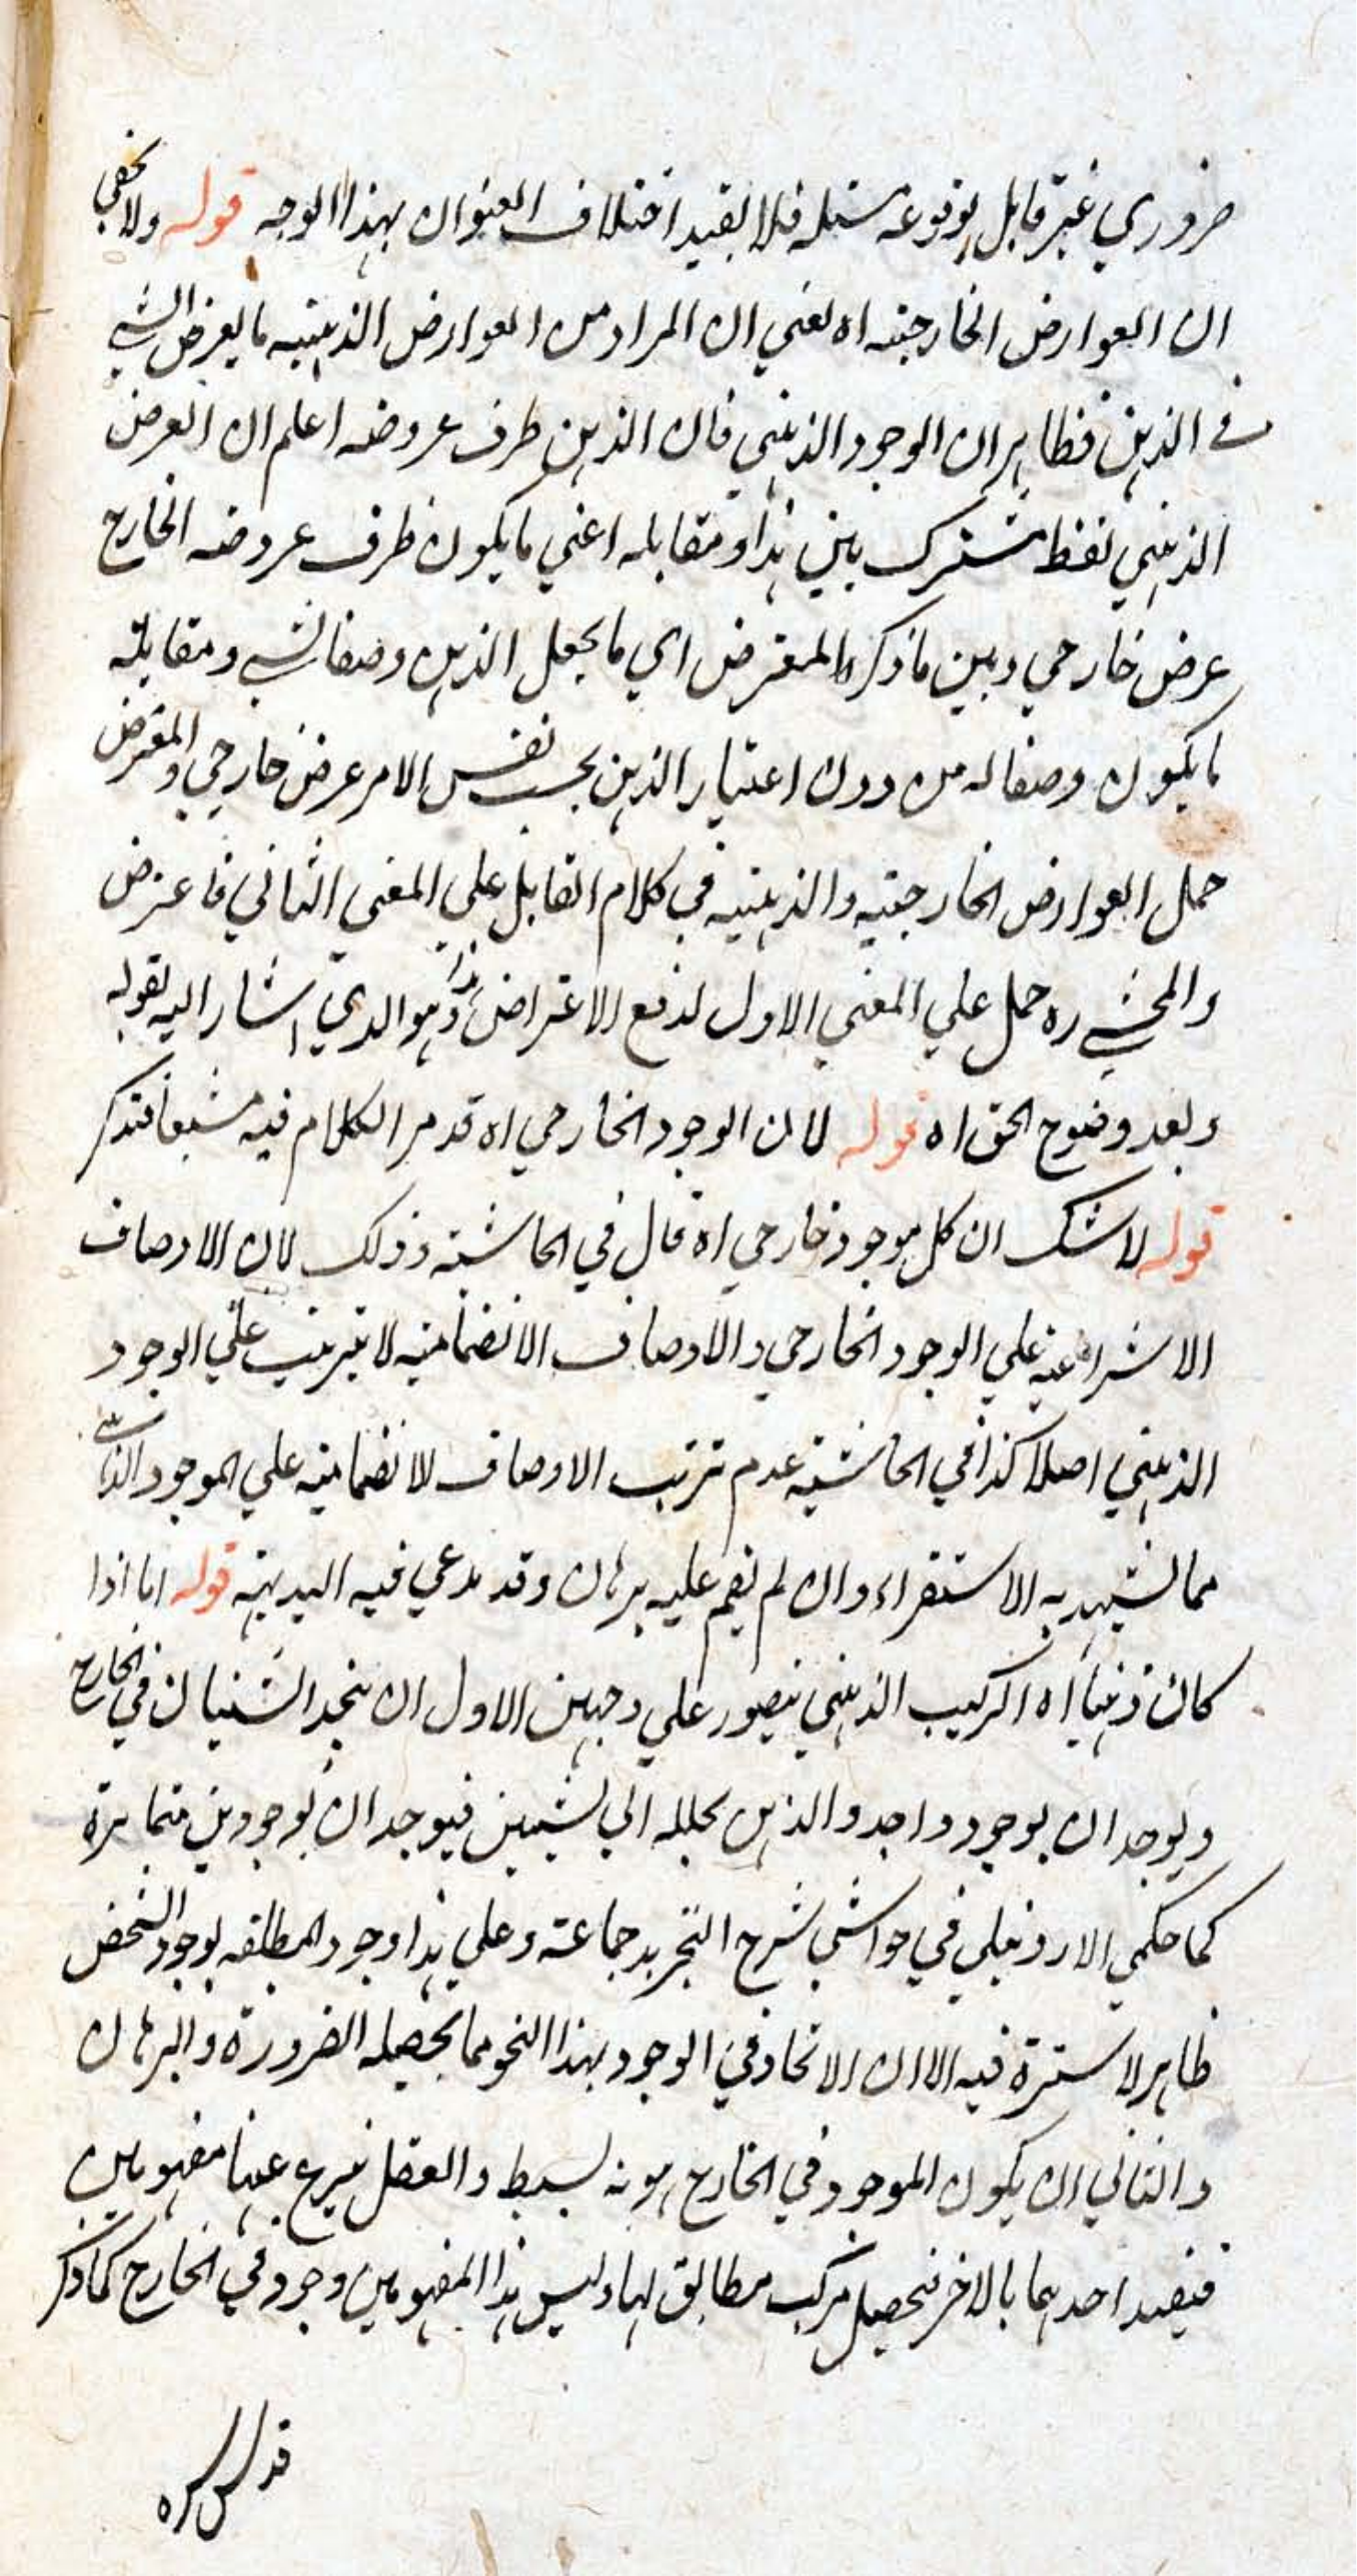 ضروري غير قابل لوقوعه مسئلة فلا يفيد اختلاف العنوان بهذا الوجه قوله ولا يخفى
ان العوارض الخارجية اه يعني ان المراد من العوارض الذهنية ما يعرض الشيء
في الذهن فظاهر ان الوجود الذهني فان الذهن ظرف عروضه اعلم ان العرض
الذهني لفظ مشترك بين هذا ومقابله اعني ما يكون ظرف عروضه الخارج
عرض خارجي وبين ما ذكره المعترض اي ما يجعل الذهن وصفا لشيء ومقابله
ما يكون وصفا له من دون اعتبار الذهن بحسب نفس الامر عرض خارجي والمعترض
حمل العوارض الخارجية والذهنية في كلام القايل على المعنى الثاني فاعترض
والمحشي ره حمل على المعنى الاول لدفع الاعتراض هذا وهو الذي اشار اليه بقوله
وبعد وضوح الحق اه قوله لان الوجود الخارجي اه قد مر الكلام فيه مشبعا فتذكر
قوله لا شك ان كل موجود خارجي اه قال في الحاشية وذلك لان الاوصاف
الانتزاعية على الوجود الخارجي والاوصاف الانضمامية لا يترتب على الوجود
الذهني اصلا كذا في الحاشية عدم ترتب الاوصاف الانضمامية على الموجود
مما يشهد به الاستقراء وان لم يقم عليه برهان وقد يدعي فيه البديهة قوله اما اذا
كان ذهنيا اه التركيب الذهني يتصور على وجهين الاول ان يتحد الشيئان في الخارج
ويوجدان بوجود واحد والذهن يحلله الى شيئين فيوجدان بوجودين متمايزة
كما حكمي الاردبيلي في حواشي شرح التجريد جماعة وعلى هذا وجود المطلقه بوجود الشخص
ظاهر لا سترة فيه الا ان الاتحاد في الوجود بهذا النحو مما يحصله الضرورة والبرهان
والثاني ان يكون الموجود في الخارج هوية بسيط والعقل ينتزع عنها مفهومين
فيقيد احدهما بالاخر فيحصل مركب مطابق لها وليس لهذا المفهومين وجود في الخارج كما ذكر
قدس سره